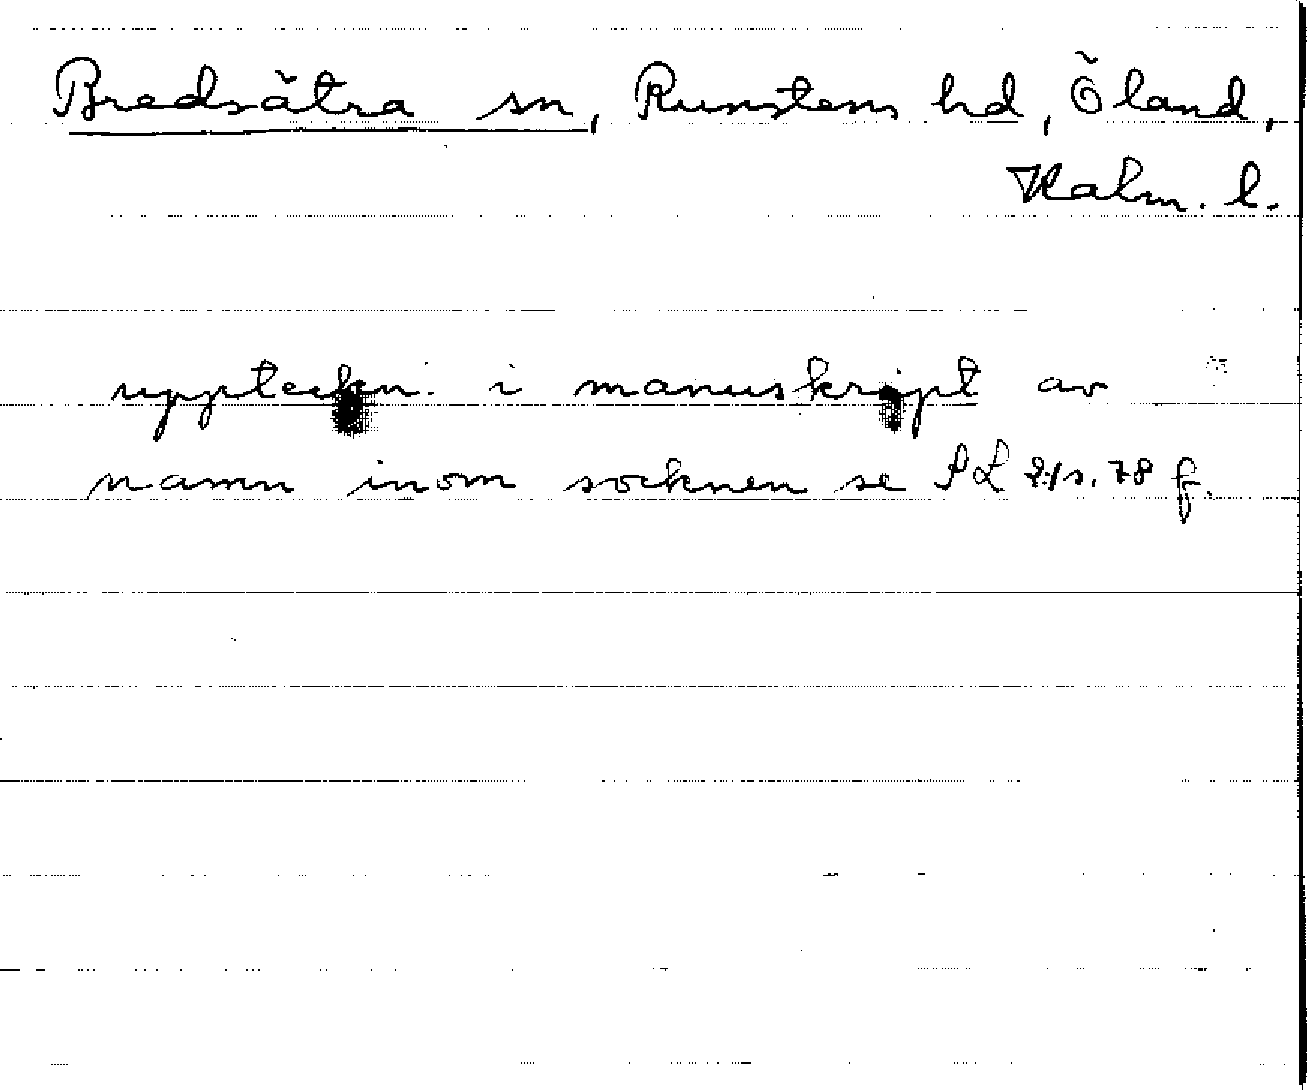 Bredsätra sn, Runstens hd, Öland,
Kalm. l.
uppteckn. i manuskript av
namn inom socknen se PL s. 78 f.